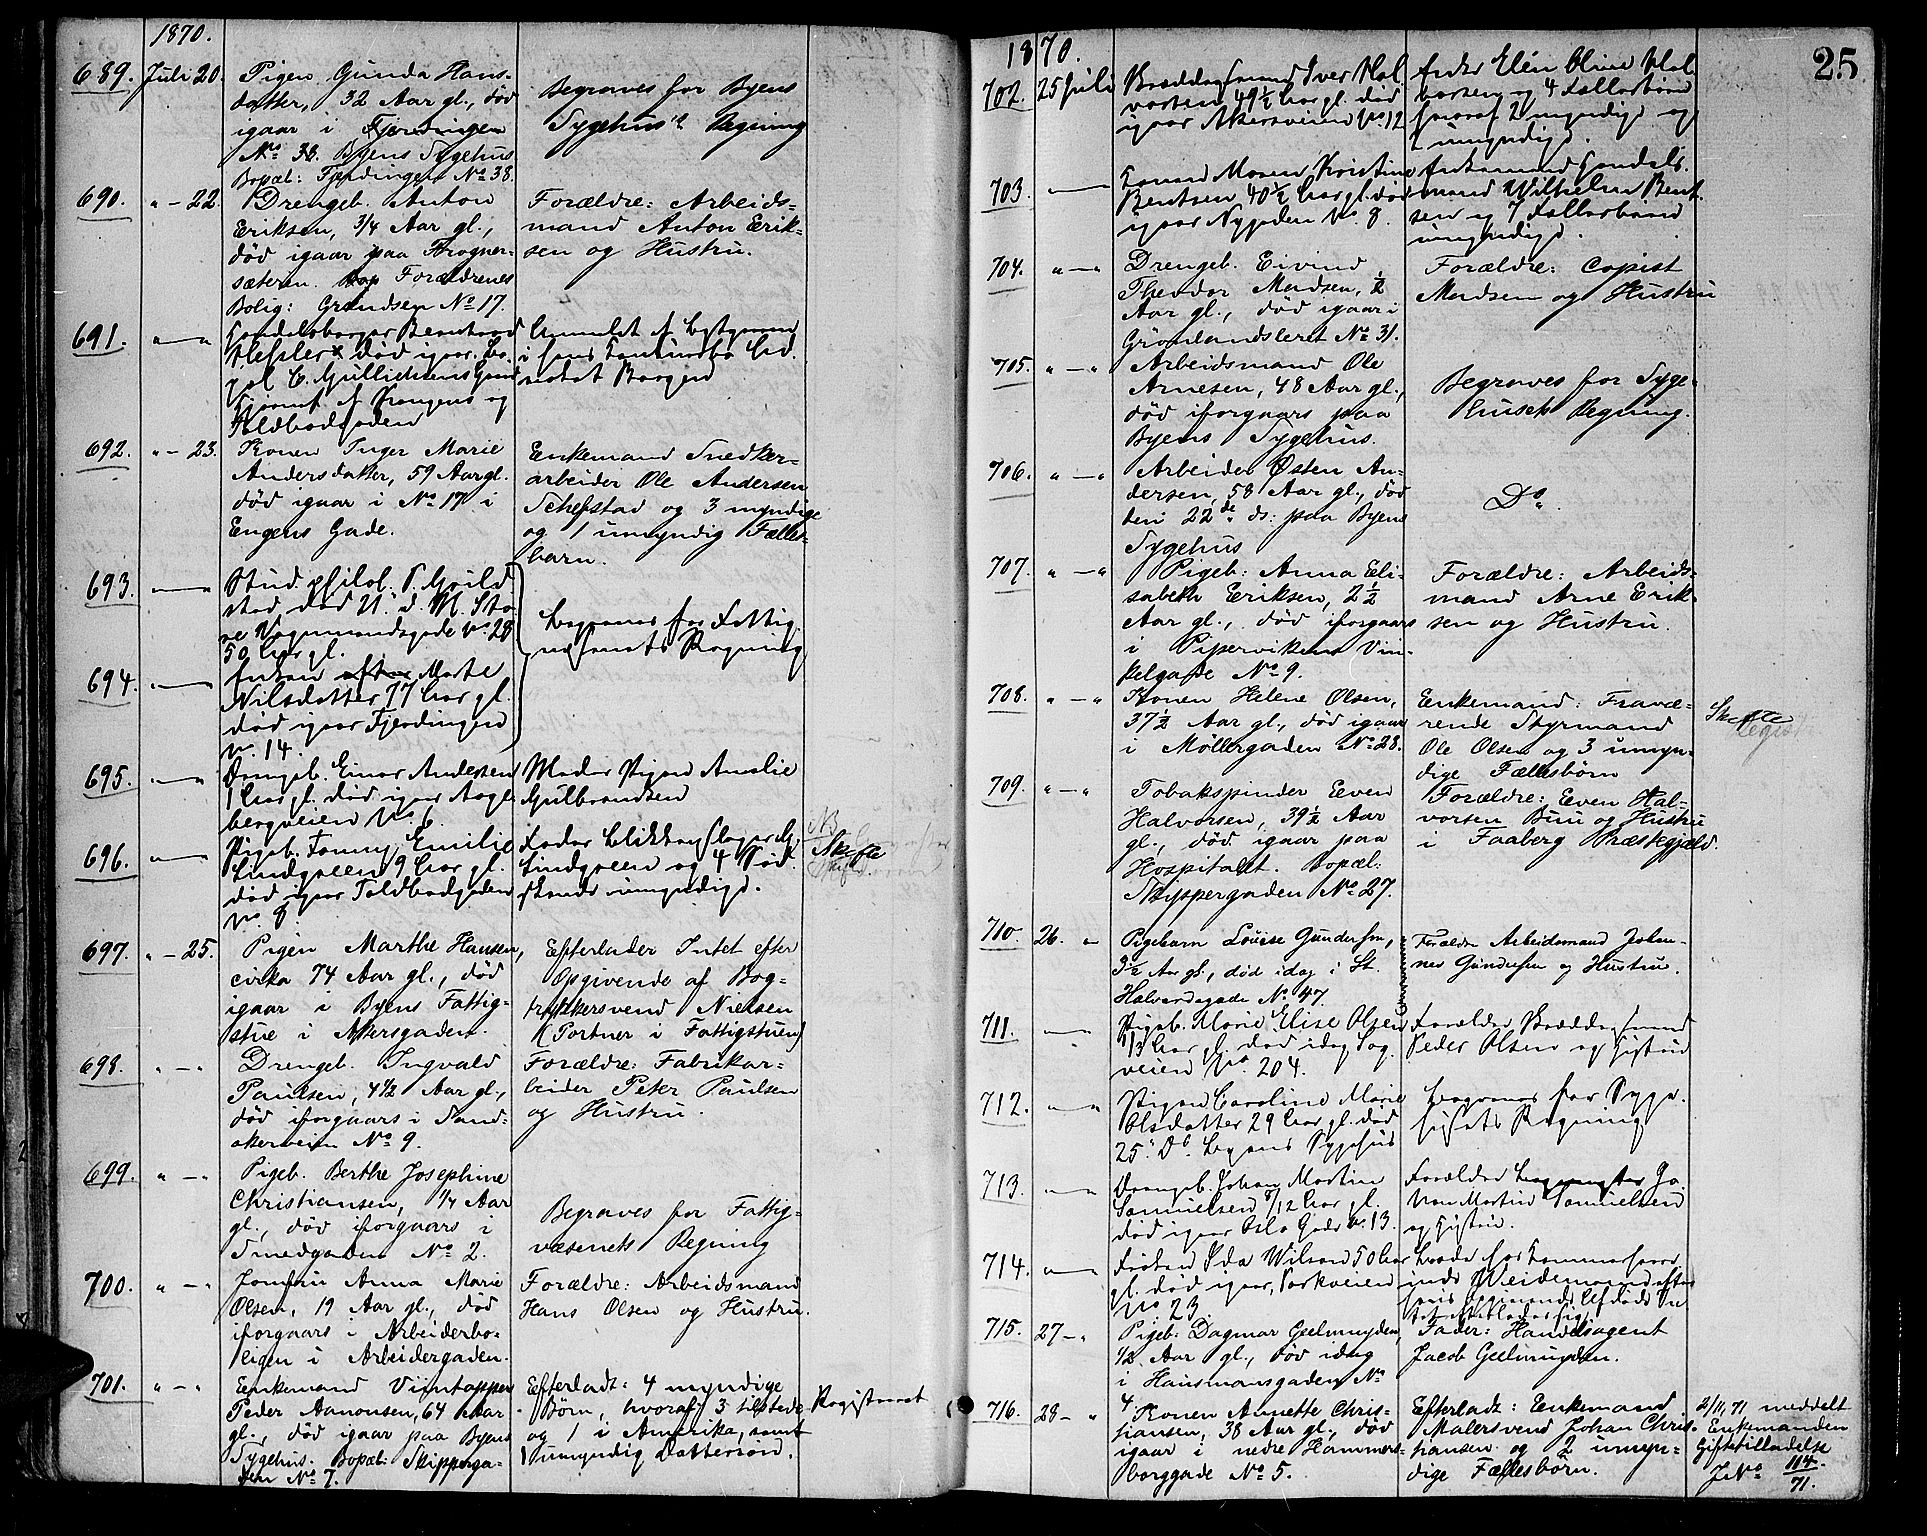 1870.
689. Juli 20. Pigen Gunda Hans-
datter, 32 Aar gl., død
igaar i Fjerdingen
No 38. Byens Sygehus
Bopæl: Fjerdingen No 38.
Begraves for Byens
Sygehus's Regning
690. " - 22 Drengeb. Anton
Eriksen, 3/4 Aar gl.,
død igaar paa Frogner-
sæteren. Forældrenes
Bolig: Grændsen No 17.
Forældre: Arbeids-
mand Anton Erik-
sen og Hustru.
691. " — " Handelsborger
død igaar. Bo-
pæl C. Gulliksens Gaard
Hjørnet af Kongens og
Toldbodgaden
Anmeldt af
i hans
692. " - 23. Konen Inger Marie
Andersdatter, 59 Aar gl.
død igaar i No 17 i
Engens Gade.
Enkemand Snedker-
arbeider Ole Andersen
Schefstad og 3 myndige
og 1 umyndig Fælles-
barn.
693. Stud. philol. P.
stad, død 21. d. M. Sto-
re Vognmandsgade No. 28
50 Aar gl.
Begraves for Fattig-
væsenets Regning
694. Enken Marte
Nilsdatter 77 Aar gl.
død igaar Fjerdingen
No. 14.
695. " — " Drengeb. Einar Andersen
1 Aar gl. død igaar Aage-
bergveien No 6.
Moder Pigen Amalie
Gulbrandsen
696. Pigeb. Fanny Emilie
Lindgreen 9 Aar gl.
død igaar Toldbodgaden
No. 8.
Fader Blikkenslager
Lindgreen og 4 Sød-
skende umyndige.
NB
Skifte
697. " - 25. Pigen Marthe Hansen,
cirka 74 Aar gl., død
igaar i Byens Fattig-
stue i Akersgaden.
Efterlader Intet efter
Opgivende af Bog-
trykkersvend Nielsen
(Portner i Fattigstuen)
698. " - " Drengeb. Ingvald
Paulsen, 4 1/2 Aar gl.,
død iforgaars i Sand-
akerveien No 9.
Forældre: Fabrikar-
beider Peter Paulsen
og Hustru.
699. " - " Pigeb. Berthe Josephine
Christiansen, 1/4 Aar
gl., død iforgaars i
Smedgaden No 2.
Begraves for Fattig-
væsenets Regning
700. " - " Jomfru Anna Marie
Olsen, 19 Aar gl., død
iforgaars i Arbeiderbo-
ligen i Arbeidergaden.
Forældre: Arbeidsmand
Hans Olsen og Hustru.
701. " - " Enkemand Viintapper
Peder Aanonsen, 64 Aar
gl., død igaar paa Byens
Sygehus. Bopæl: Skipperga-
den No 7.
Efterladt: 4 myndige
Børn, hvoraf 3 tilstede
og 1 i Amerika, samt
1 umyndig Dattersøn.
Registreret
1870.
25
702. 25 Juli Bræddegrmand Iver Hal-
vorsen 49 1/2 Aar gl. død
igaar Akersveien No. 12
Enke Elen Oline Hal-
vorsen og 4 Fællesbørn
hvoraf 2 myndige og
2 umyndige.
703. Konen Maren Kristine
Bentsen 40 1/2 Aar gl. død
igaar Nygaden No 8.
Enkemand Handels-
mand Wilhelm Bent-
sen og 7 Fællesbørn
umyndige.
704. " — " Drengeb. Eivind
Theodor Madsen, 1/2
Aar gl., død igaar i
Grønlandsleret No 31.
Forældre: Copist
Madsen og Hustru
705. " - " Arbeidsmand Ole
Arnesen, 48 Aar gl.,
død iforgaars paa
Byens Sygehus.
Begraves for Syge-
husets Regning.
706. " — " Arbeider Østen An-
dersen, 58 Aar gl., død
den 22de ds. paa Byens
Sygehus
Do.
707. " — " Pigeb: Anna Eli-
sabeth Eriksen, 2 1/2
Aar gl., død iforgaars
i Pipervikens Vin-
kelgade No 9.
Forældre: Arbeids-
mand Arne Erik-
sen og Hustru.
708. " - " Konen Helene Olsen,
37 1/2 Aar gl., død igaar
i Møllergaden No 28.
Enkemand: Fravæ-
rende Styrmand
Ole Olsen og 3 umyn-
dige Fællesbørn
Skifte
709. " - " Tobakspinder Even
Halvorsen, 39 1/2 Aar
gl., død igaar paa
Hospitalet. Bopæl:
Skippergaden No 27.
Forældre: Even Hal-
vorsen Buu og Hustru
i Faaberg Præstegjæld.
710. 26. " Pigebarn Louise Gundersen,
3 1/2 Aar gl., død idag i St.
Halvardsgade No 47.
Forældre Arbeidsmand Johan-
nes Gundersen og Hustru.
711. Pigeb. Marie Elise Olsen
1/3 Aar gl. død idag Sag-
veien No 204.
Forældre Bræddegrmand
Peder Olsen og Hustru
712. " — " Pigen Caroline Marie
Olsdatter 29 Aar gl. død
25. Do. Byens Sygehus
Begraves for Syge-
husets Regning
713. Drengeb. Johan Martin
Samuelsen 8/12 Aar gl.
død igaar Oslo Gade No. 13.
Forældre Jo-
han Martin Samuelsen
og Hustru.
714. Frøken Ida Wilsand 50 Aar
gl. død igaar, Parkveien
No 23.
Weidemann efter
715. 27 - " Pigeb: Dagmar Geelmuyden,
1/2 Aar gl., død idag
i Hausmansgaden No
4
Fader: Handelsagent
Jacob Geelmuyden.
716. 28 - " Konen Annette Chris-
tiansen, 38 Aar gl., død
igaar i nedre Hammers-
borggade No 5.
Efterladt: Enkemand
Malersvend Johan Chris-
tiansen og 2 umyn-
dige Fællesbørn.
2/11, 71 meddelt
Enkemanden
Giftetilladelse
J No 114/71.